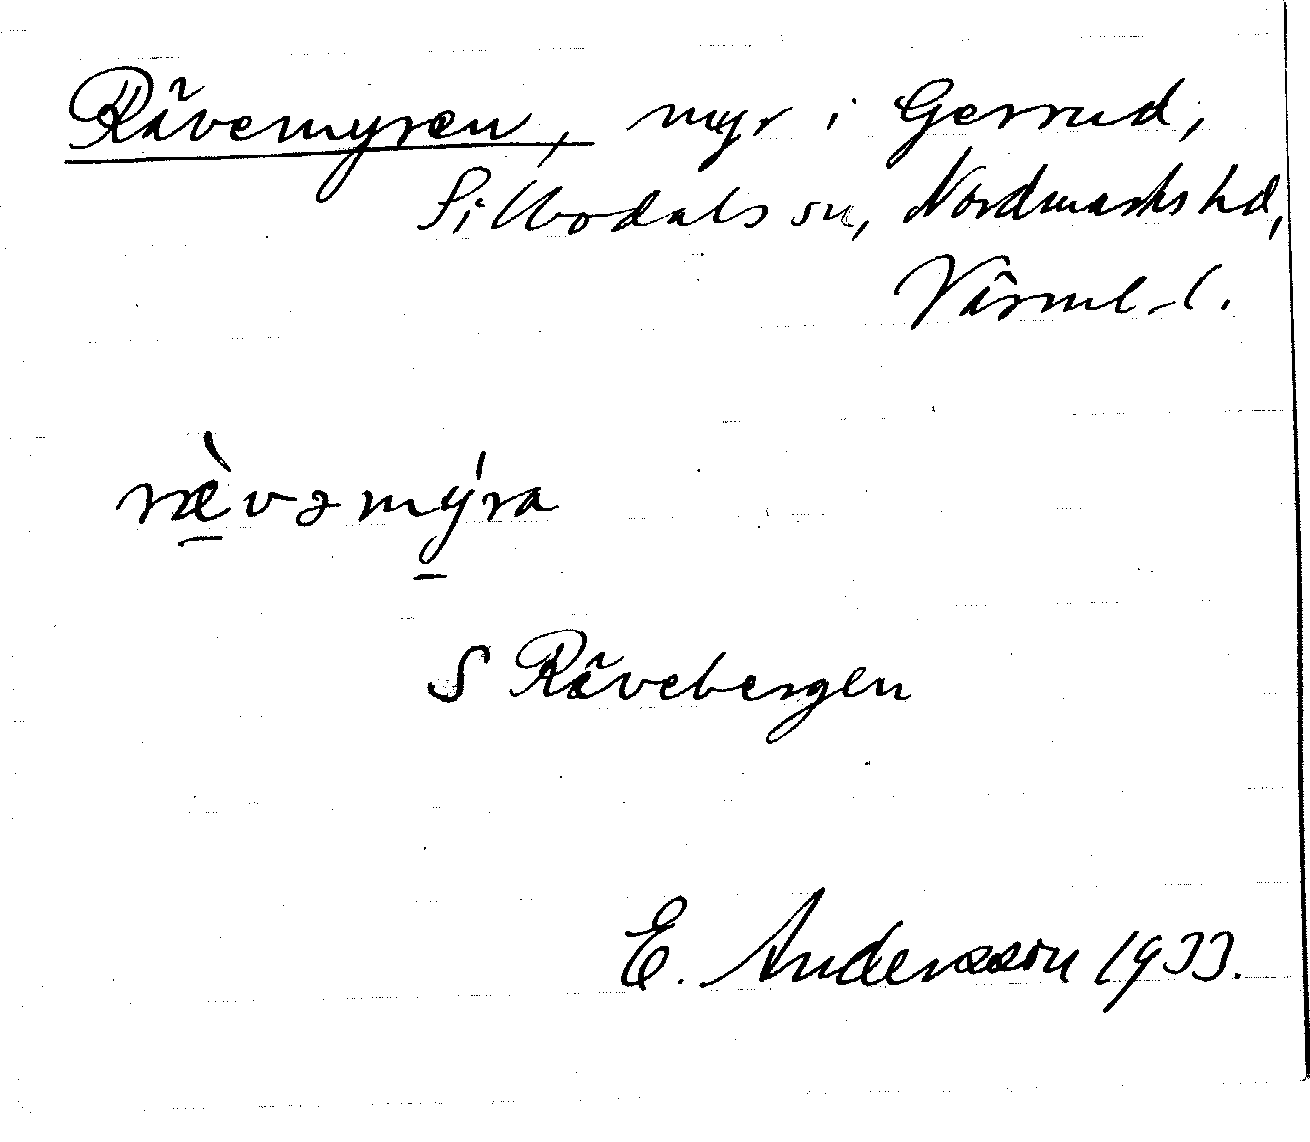 Rävemyren, myr i Gerrud,
Silbodals sn, Nordmarks hd,
Värml. l.
ræ̀vəmýra
S Rävebergen
E. Andersson 1933.